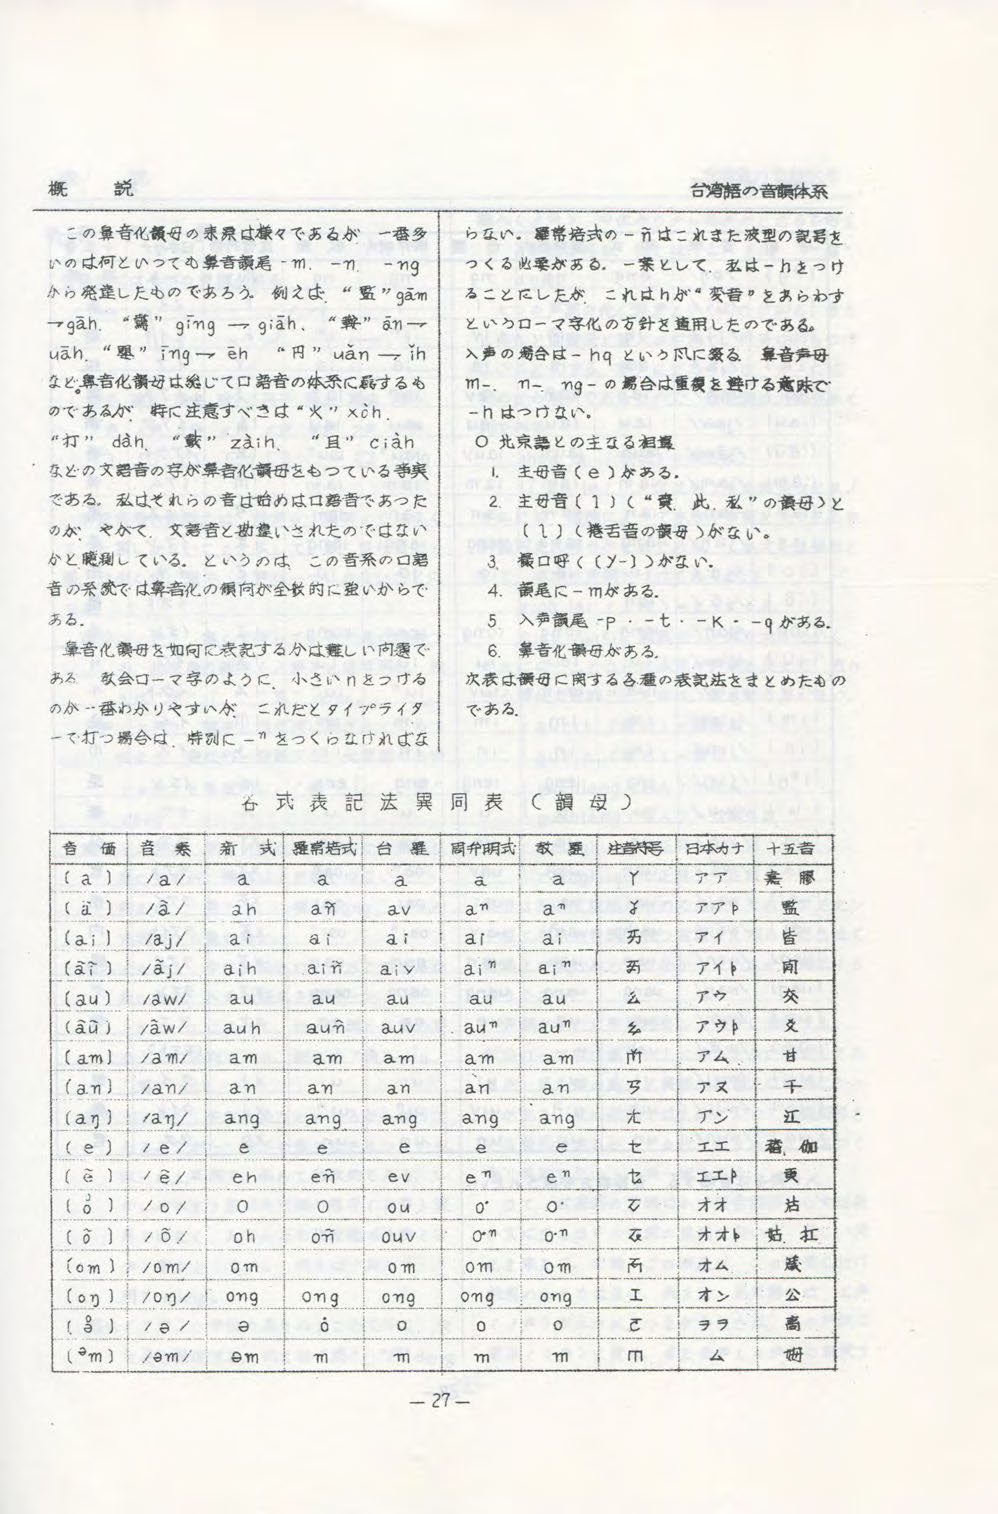 概　説
台湾語の音韻体系
この鼻音化韻母の来源は様々であるが 一番多
いのは何といつても鼻音韻尾 -m. -n. -ng
から発達したものであろう。例えば “監” gām
→gāh. gīng → giāh. ān→
uāh. “嬰” īng→ ēh “円” uǎn → ǐh
など。鼻音化韻母は総じて口語音の体系に属するも
のであるが 特に注意すべきは “火” xòh.
“打” dàh. “載” zàih. “且” ciàh
などの文語音の字が鼻音化韻母をもつている事実
である。私はそれらの音は始めは口語音であつた
のが やがて. 文語音と勘違いされたのではない
かと臆測している。というのは、この音系の口語
音の系統では鼻音化の傾向が全般的に強いからで
ある.
鼻音化韻母を如何に表記するかは難しい問題で
ある 教会ローマ字のように. 小さい n をつける
のが一番わかりやすいが これだとタイプライタ
ーで打つ場合は. 特別に -ⁿ をつくらなければな
らない. 羅常培式の -ñ はこれまた波型の記号を
つくる必要がある. 一案として. 私は -h をつけ
ることにしたが. これは h が“変音”をあらわす
というローマ字化の方針を適用したのである。
入声の場合は -hq という風に綴る 鼻音声母
m-. n-. ng- の場合は重複を避ける意味で
-h はつけない。
○ 北京語との主なる相違
1. 主母音〔e〕がある.
2. 主母音〔ɿ〕(“資. 此. 私”の韻母)と
〔ʅ〕(捲舌音の韻母)がない。
3. 撮口呼(〔y-〕)がない.
4. 韻尾に -m がある.
5. 入声韻尾 -p · -t · -k · -q がある.
6. 鼻音化韻母がある.
次表は韻母に関する各種の表記法をまとめたもの
である.
各式表記法異同表（韻母）
音価 音素 新式 羅常培式 台羅 周弁明式 教羅 注音符号 日本カナ 十五音
〔a〕 /a/ a a a a a ㄚ アア 嘉 膠
〔ã〕 /ã/ ah añ av aⁿ aⁿ ㆩ アアㇷ 監
〔ai〕 /aj/ ai ai ai ai ai ㄞ アイ 皆
〔ãĩ〕 /ãj/ aih aiñ aiv aiⁿ aiⁿ ㆮ アイㇷ 間
〔au〕 /aw/ au au au au au ㄠ アウ 交
〔ãũ〕 /ãw/ auh auñ auv auⁿ auⁿ ㆯ アウㇷ 爻
〔am〕 /am/ am am am am am ㆰ アム 甘
〔an〕 /an/ an an an an an ㄢ アヌ 干
〔aŋ〕 /aŋ/ ang ang ang ang ang ㄤ アン 江
〔e〕 /e/ e e e e e ㄝ エエ 稽. 伽
〔ẽ〕 /ẽ/ eh eñ ev eⁿ eⁿ エエㇷ 更
/o/ o o ou o· o· オオ 沽
〔õ〕 /õ/ oh oñ ouv o·ⁿ o·ⁿ オオㇷ 姑. 扛
〔om〕 /om/ om om om om ㆱ オム 蔵
〔oŋ〕 /oŋ/ ong ong ong ong ong オン 公
/ə/ ə ȯ o o o ㄛ ヲヲ 高
〔ᵊm〕 /əm/ əm m m m m ㄇ ム 姆
— 27 —